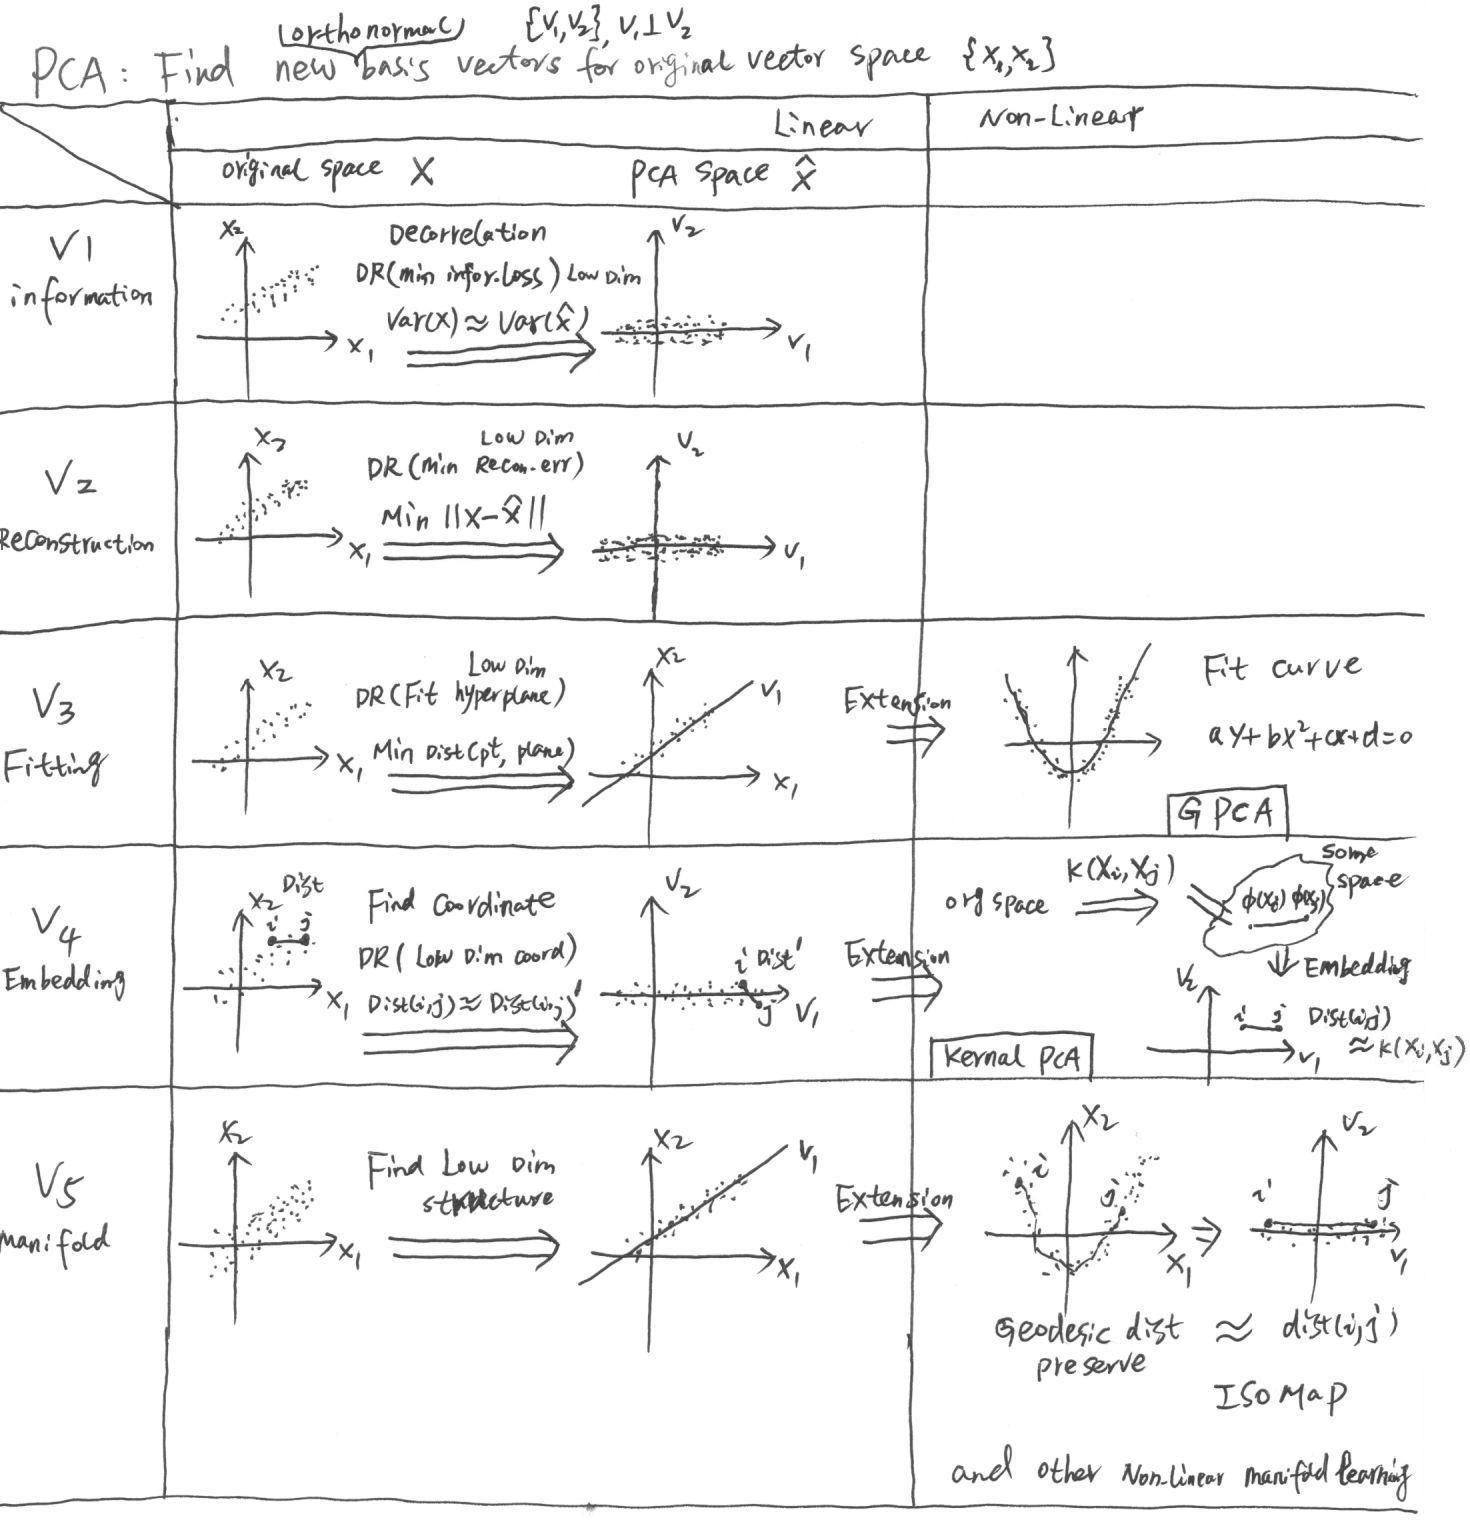 (orthonormal) {V₁,V₂}, V₁⊥V₂
PCA: Find new basis vectors for original vector space {X₁,X₂}
Linear
Non-Linear
original space X
PCA Space X̂
V1
information
X₂
X₁
Decorrelation
DR(min infor.Loss) Low Dim
Var(X)≈Var(X̂)
V₂
V₁
V2
Reconstruction
X₂
X₁
Low Dim
DR(Min Recon-err)
Min ||X-X̂||
V₂
V₁
V3
Fitting
X₂
X₁
Low Dim
DR(Fit hyperplane)
Min Dist(pt, plane)
X₂
V₁
X₁
Extension
Fit curve
ay+bx²+cx+d=0
GPCA
V4
Embedding
X₂ Dist
i j
X₁
Find Coordinate
DR( Low Dim coord)
Dist(i,j)≈Dist(i,j)'
V₂
i Dist'
j V₁
Extension
org space
K(Xi,Xj)
Some
space
ϕ(Xi) ϕ(Xj)
Embedding
V₂
i j Dist(i,j)
≈K(Xi,Xj)
V₁
Kernal PCA
V5
Manifold
X₂
X₁
Find Low Dim
structure
X₂
V₁
X₁
Extension
X₂
i
j
X₁
V₂
i j
V₁
Geodesic dist ≈ dist(i,j)
preserve
ISOMAP
and other Non-Linear manifold learning